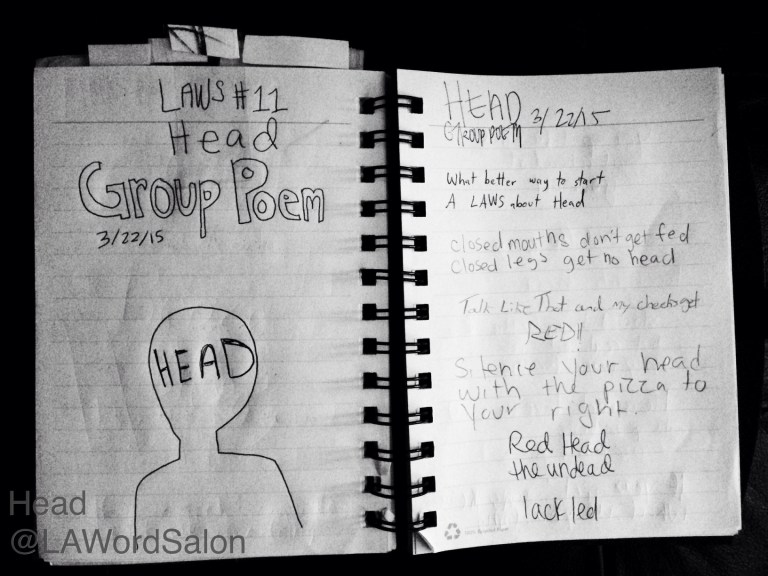 LAWS #11
Head
Group Poem
3/22/15
HEAD
HEAD
3/22/15
GROUP POEM
What better way to start
A LAWS about Head
closed mouths don't get fed
closed legs get no head
Talk Like That and my cheeks get
RED!!
Silence your head
with the pizza to
your right.
Red Head
the undead
lack led
Head
@LAWordSalon